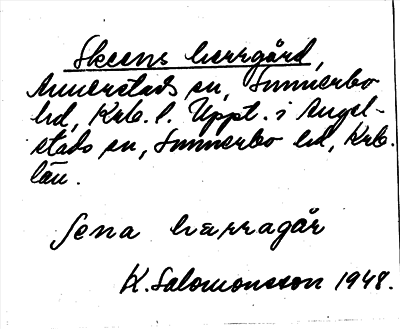 Skeens herrgård,
Annerstads sn, Sunnerbo
hd, Krb. l. Uppt. i Angel-
stads sn, Sunnerbo hd, Krb.
län.
Sena hærragår
K. Salomonsson 1948.